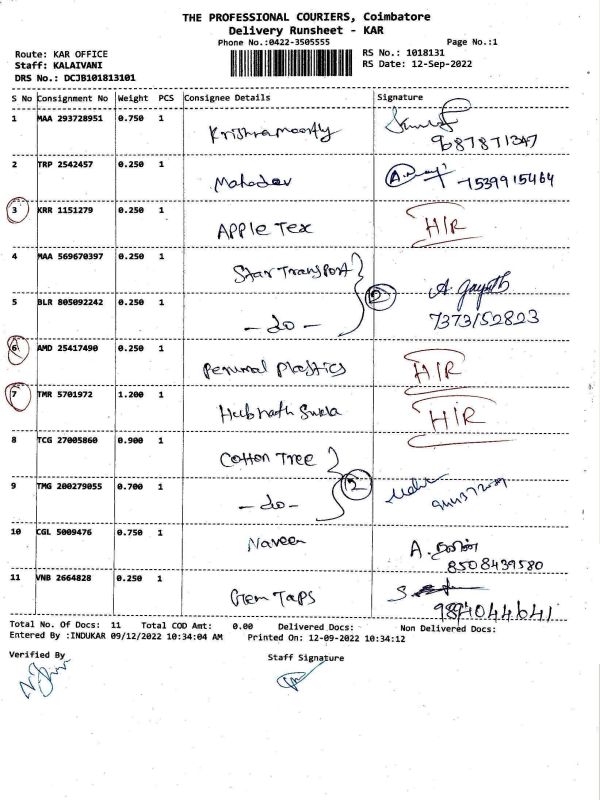 THE PROFESSIONAL COURIERS, Coimbatore
Delivery Runsheet - KAR
Phone No.:0422-3505555 Page No.:1
Route: KAR OFFICE RS No.: 1018131
Staff: KALAIVANI RS Date: 12-Sep-2022
DRS No.: DCJB101813101
S No Consignment No Weight PCS Consignee Details Signature
1 MAA 293728951 0.750 1 Krishnamoorthy
9687871347
2 TRP 2542457 0.250 1 Mahadev 7539915464
3 KRR 1151279 0.250 1 APPLE TEX H/R
4 MAA 569670397 0.250 1 Star Transport
2 A. Gayathri
5 BLR 805092242 0.250 1 - do - 7373152823
6 AMD 25417490 0.250 1 Perumal Plastics H/R
7 TMR 5701972 1.200 1 H/R
8 TCG 27005860 0.900 1 Cotton Tree
2
9 TMG 200279055 0.700 1 - do -
10 CGL 5009476 0.750 1 Naveen A.
8508439580
11 VNB 2664828 0.250 1 Gem Taps
9894044641
Total No. Of Docs: 11 Total COD Amt: 0.00 Delivered Docs: Non Delivered Docs:
Entered By :INDUKAR 09/12/2022 10:34:04 AM Printed On: 12-09-2022 10:34:12
Verified By Staff Signature